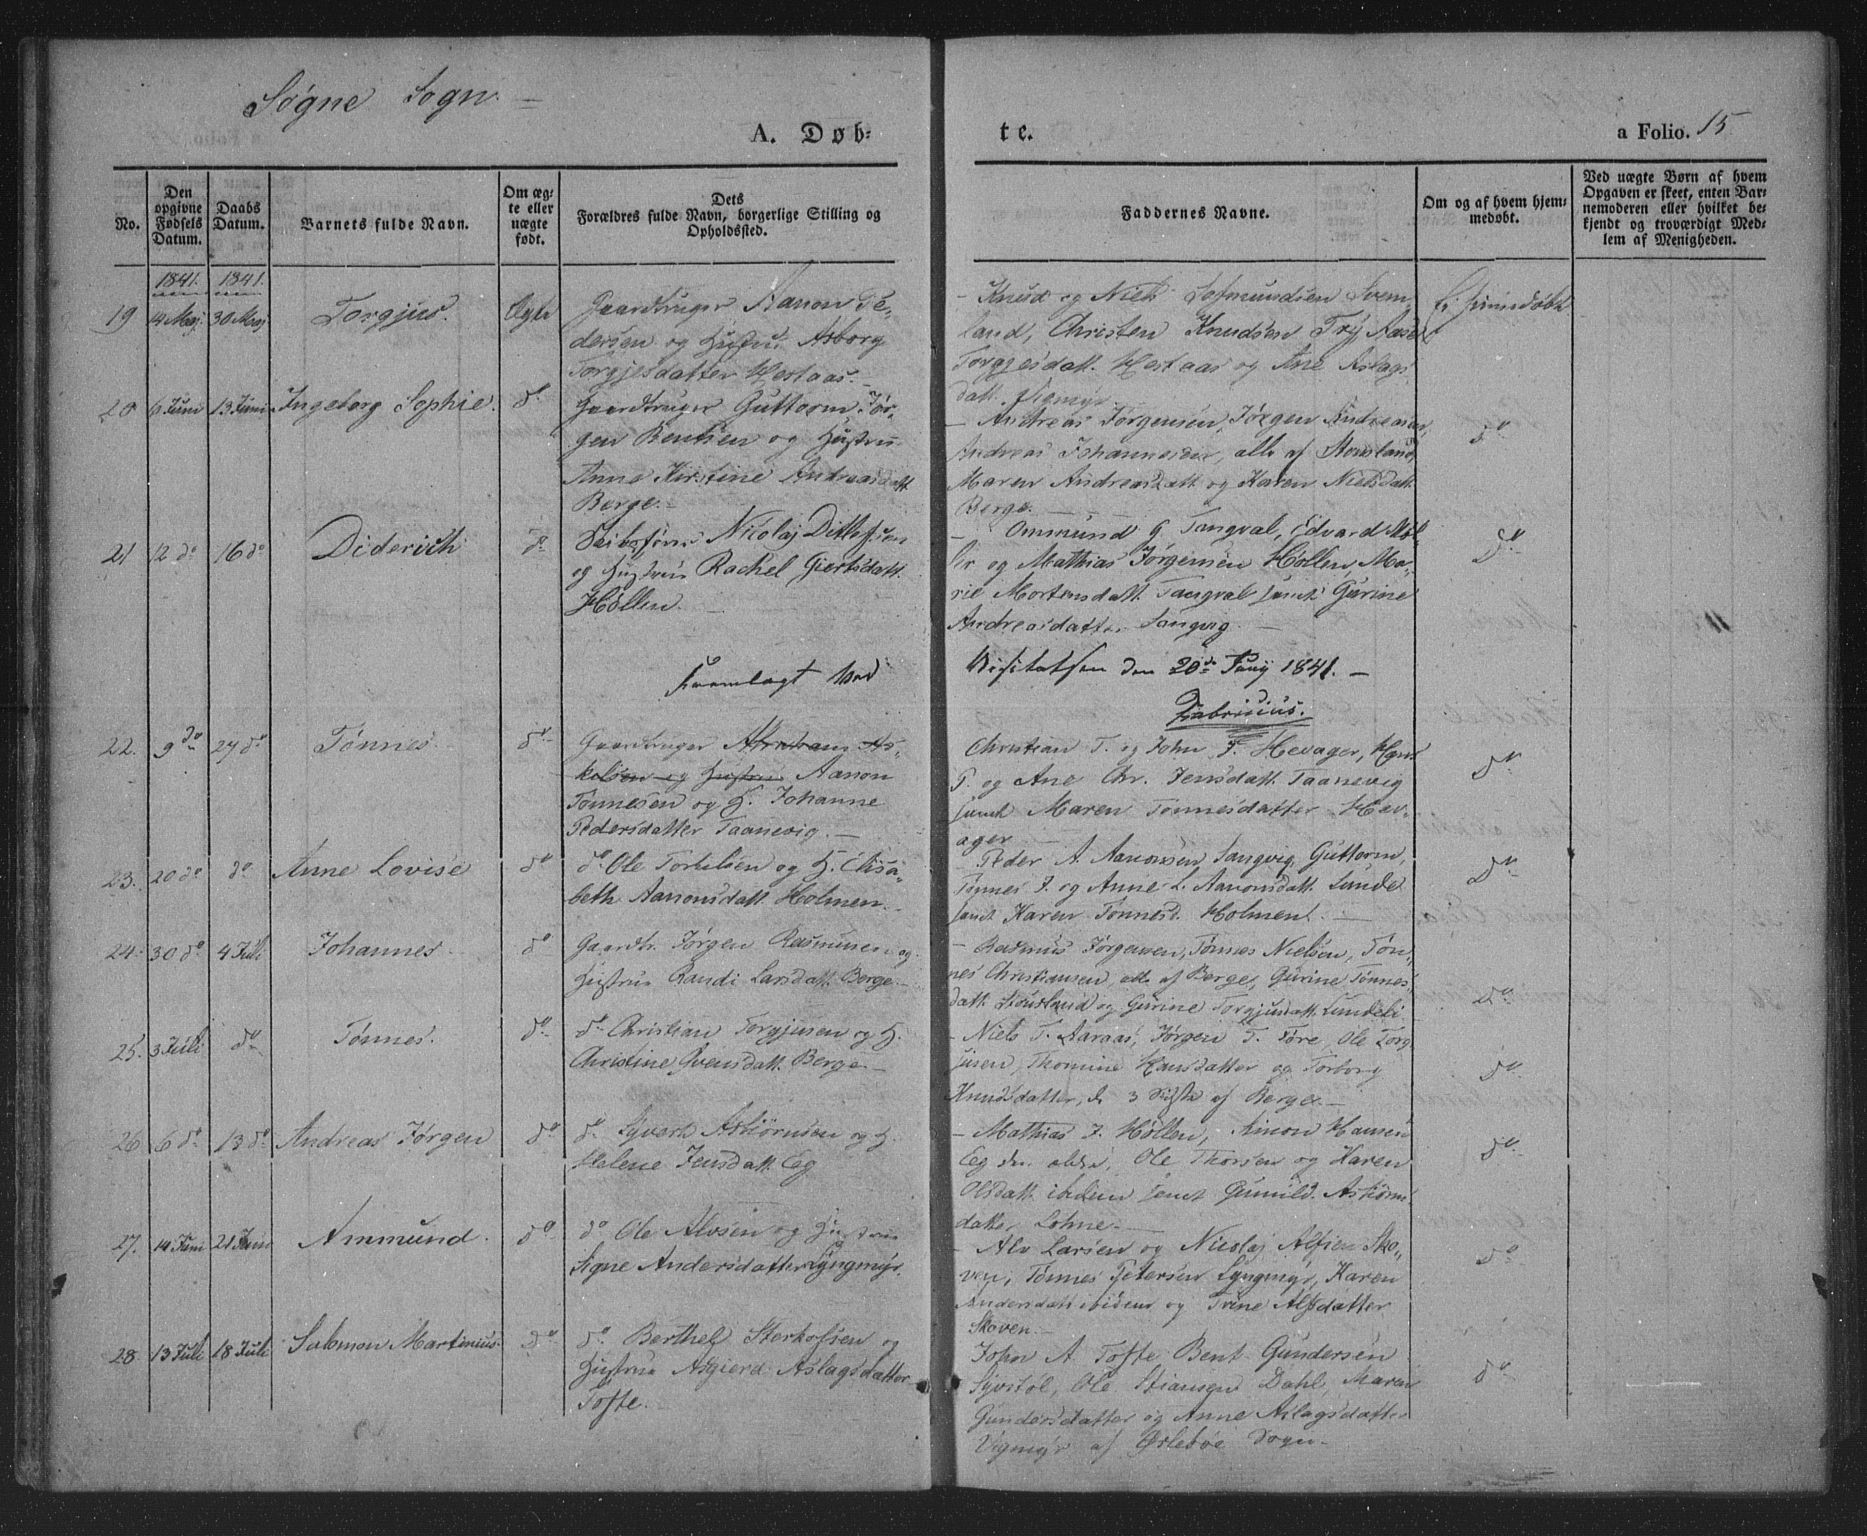 Søgne Sogn.
A. Døb-
te.
a Folio. 15
No.
Den opgivne Fødsels Datum.
Daabs Datum.
Barnets fulde Navn.
Om æg-
te eller
uægte
født.
Dets
Forældres fulde Navn, borgerlige Stilling og
Opholdssted.
Faddernes Navne.
Om og af hvem hjem-
medøbt.
Ved uægte Børn af hvem
Opgaven er skeet, enten Bar-
nemoderen eller hvilket be-
kjendt og troværdigt Med-
lem af Menigheden.
1841. 1841.
19 14 Maj 30 Maj Torgjus. Ægte
Gaardbruger Aanon Pe-
dersen og Hustru Asborg
Torgjesdatter Hestaas.
- Knud og Niels Sofmundsen
land, Christen Knudsen Try, Aase
Torgjesdatt. Hestaas og Ane Aslags
datt. Vigmyr.
Ei hjemmedøbt
20 6 Juni 13 Juni Ingeborg Sophie. do
Gaardbruger Guttorm Jør-
gen Bentsen og Hustru
Anne Kirstine Andreasdatt.
Berge.
- Andreas Jørgensen, Jørgen Andreasen,
Andreas Johannesen, alle af Stousland,
Maren Andreasdatt og Karen Nielsdatt.
Berge.
do
21 12 do 16 do Diderich do
Nicolaj Ditlefsen
og Hustrue Rachel Giertsdatt.
Høllen.
- Ommund G. Tangval, Edvard Møl-
ler og Mathias Jørgensen Høllen, Ma-
rie Mortensdatt. Tangval samt Gurine
Andreasdatter Langvig.
do
Fremlagt ved
Visitatsen den 20de Juny 1841.
Fabricius.
22. 9 do 27 do Tønnes. do
Gaardbruger Abraham As-
kelsen og Hustru Aanon
Tønnesen og H. Johanne
Pedersdatter Taanevig.
Christian T. og John T. Hevager, Hans
P. og Ane Chr. Jensdatt. Taanevig
samt Maren Tønnesdatter Hev-
ager
do
23. 20 do do Anne Lovise do
do Ole Torkilsen og H. Elisa-
beth Aanonsdatt. Holmen.
Peder A. Aanonsen Langvig, Guttorm,
Tønnes J. og Anne L. Aanonsdatt. Lunde
samt Karen Tønnesd. Holmen.
do
24. 30 do 4 Juli Johannes do
Gaardbr. Jørgen Rasmusen og
Hustrue Randi Larsdatt. Berge.
- Rasmus Jørgensen, Tønnes Nielsen, Tøn-
nes Christiansen, alle af Berge, Gurine Tønnes-
datt. Stousland og Gurine Torgjusdatt. Lundeli.
do
25. 3 Juli do Tønnes. do
do Christian Torgjusen og H.
Christine Svensdatt. Berge.
- Niels T. Aaraas, Jørgen T. Føre, Ole Torg-
jusen, Thomine Hansdatter og Torborg
Knudsdatter, de 3 Sidste af Berge.
do
26 6 do 13 do Andreas Jørgen do
do Syvert Asbiørnsen og H.
Helene Jensdatt. Eg
- Mathias J. Høllen, Ainon Hansen
Eg den ældre, Ole Thorsen og Karen
Olsdatt. ibidem samt Gunild Asbiørns-
datter Lohne.
do
27. 14 Juni 21 Juni Ammund. do
do Ole Alvsen og Hustrue
Signe Andersdatter Lyngmyr.
- Alv Larsen og Nicolaj Alfsen Sko-
ven, Tønnes Petersen Lyngmyr, Karen
Andersdatt. ibidem og Trine Alfsdatter
Skoven.
do
28 13 Juli 18 Juli Salomon Martinius. do
do Berthel Sterkofsen og
Hustrue Asgierd Aslagsdatter
Tofte.
John A. Tofte Bent Gundersen
Syvstøl, Ole Stiansen Dahl, Maren
Gundersdatter og Anne Aslagsdatter
Vigmyr af Øslebøe Sogn.
do